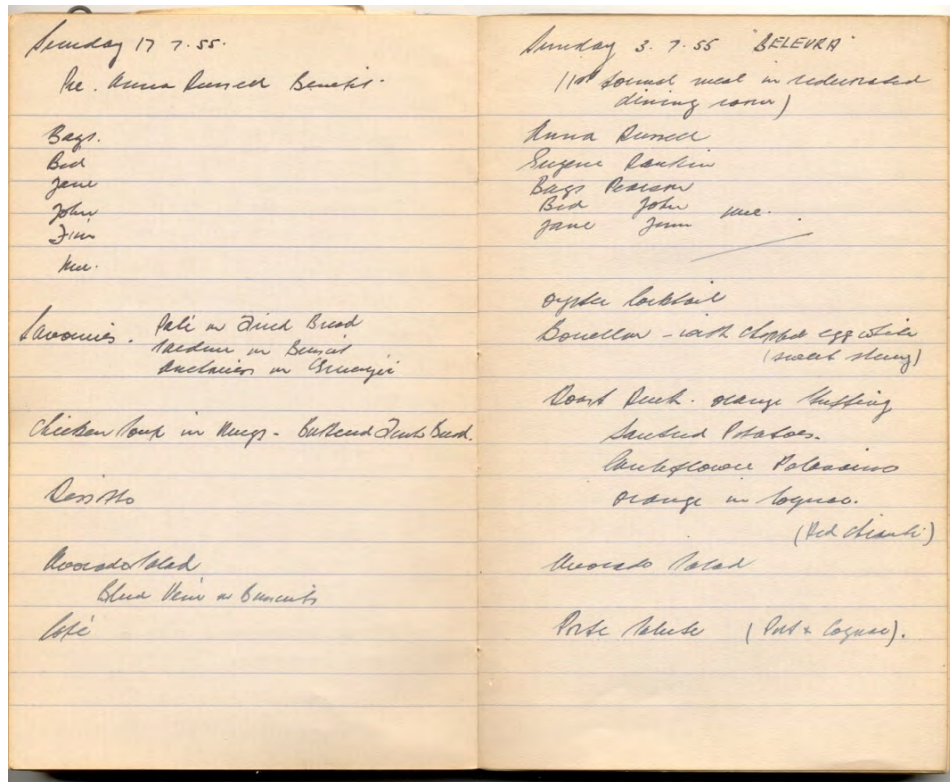 Sunday 17 7.55.
Pre. Anna Russell Benefit.
Bags.
Bid
Jane
John
Jim
Me.
Savouries. Paté on Fried Bread
Sardine on Biscuit
Anchovies on
Chicken Soup in Mugs - Buttered French Bread.
Risotto
Avocado Salad
Blue Vein on Biscuits
Café
Sunday 3. 7.55 "BELEVRA"
(1st formal meal in redecorated
dining room)
Anna Russell
Eugene Rankin
Bags Pearson
Bid John me.
Jane Jim
Oyster Cocktail
Bouillon - with chopped egg white
(sweet sherry)
Roast Duck. orange stuffing
Sauteed Potatoes.
Cauliflower
orange in Cognac.
(Red Chianti)
Avocado Salad
(Port & Cognac).